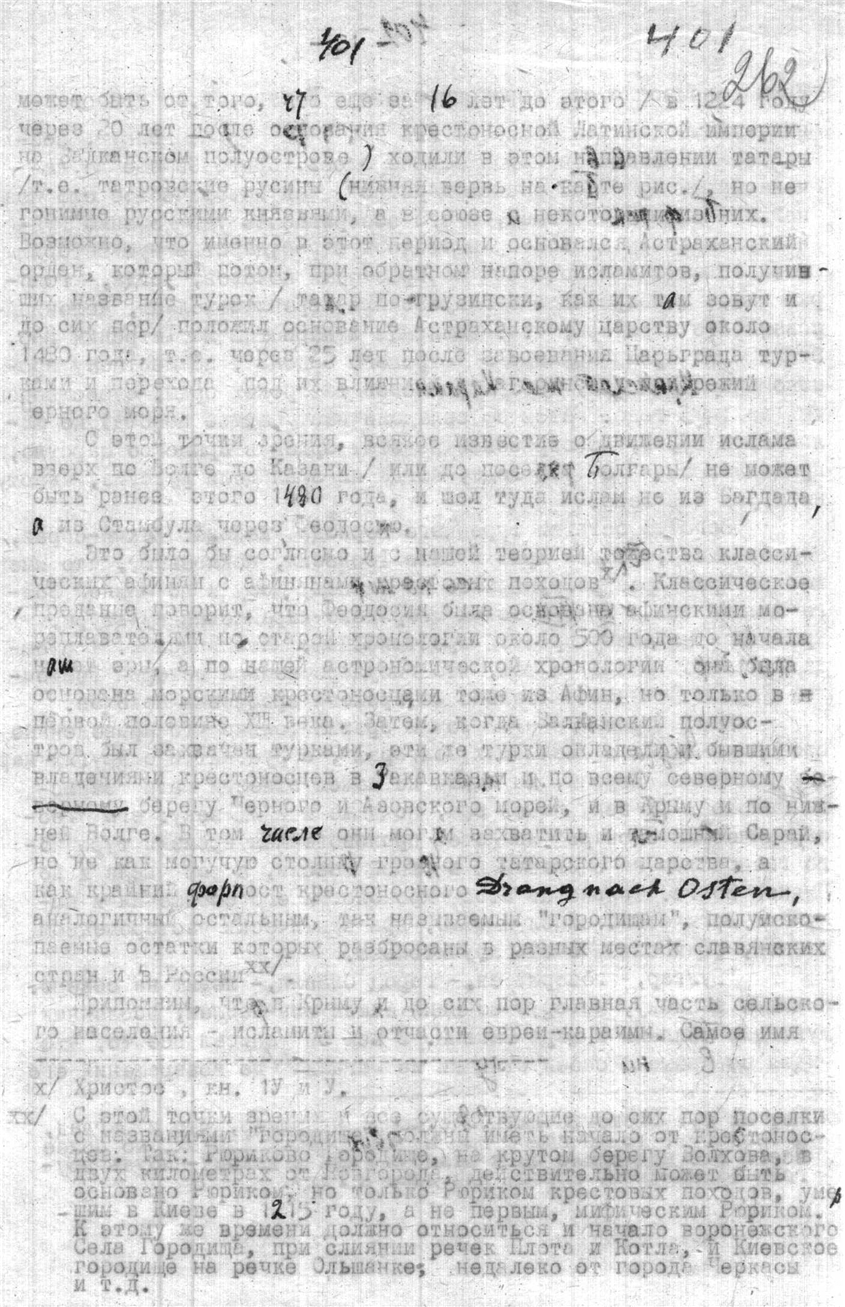 401 402 401
262
может быть от того, что еще за 16 лет до этого / в 1224 году
через 20 лет после основания крестоносной Латинской империи
на Балканском полуострове ) ходили в этом направлении татары
/т.е. татровские русины (нижняя вервь на карте рис./, но не
гонимые русскими князьями, а в союзе с некоторыми из них.
Возможно, что именно в этот период и основался Астраханский
орден, который потом, при обратном напоре исламитов, получив-
ших название турок / татар по-грузински, как их там зовут и
до сих пор/ положил основание Астраханскому царству около
1480 года, т.е. через 25 лет после завоевания Царьграда тур-
ками и перехода под их влияние
ерного моря.
С этой точки зрения, всякое известие о движении ислама
вверх по Волге до Казани / или до поселка Болгары/ не может
быть ранее этого 1480 года, и шел туда ислам не из Багдада,
а из Стамбула через Феодосию.
Это было бы согласно и с нашей теорией тожества класси-
ческих афинян с афинянами крестовых походов х/. Классическое
предание говорит, что Феодосия была основана афинскими мо-
реплавателями по старой хронологии около 500 года до начала
нашей эры, а по нашей астрономической хронологии она была
основана морскими крестоносцами тоже из Афин, но только в
первой половине XIII века. Затем, когда Балканский полуос-
тров был захвачен турками, эти же турки овладели и бывшими
владениями крестоносцев в Закавказьи и по всему северному
берегу Черного и Азовского морей, и в Крыму и по ниж-
ней Волге. В том числе они могли захватить и Сарай,
но не как могучую столицу грозного татарского царства, а
как крайний форпост крестоносного Drang nach Osten,
аналогичный остальным, так называемым "городищам", полуиско-
паемые остатки которых разбросаны в разных местах славянских
стран и в России хх/.
Припомним, что в Крыму и до сих пор главная часть сельско-
го населения - исламиты и отчасти евреи-караимы. Самое имя
х/ Христос , кн. 1У и У.
хх/ С этой точки зрения и все существующие до сих пор поселки
с названиями "Городище" должны иметь начало от крестонос-
цев. Так: Рюриково Городище, на крутом берегу Волхова, в
двух километрах от Новгорода, действительно может быть
основано Рюриком, но только Рюриком крестовых походов, умер
шим в Киеве в 1215 году, а не первым, мифическим Рюриком.
К этому же времени должно относиться и начало воронежского
Села Городища, при слиянии речек Плота и Котла, и Киевское
городище на речке Ольшанке, недалеко от города Черкасы
и т.д.